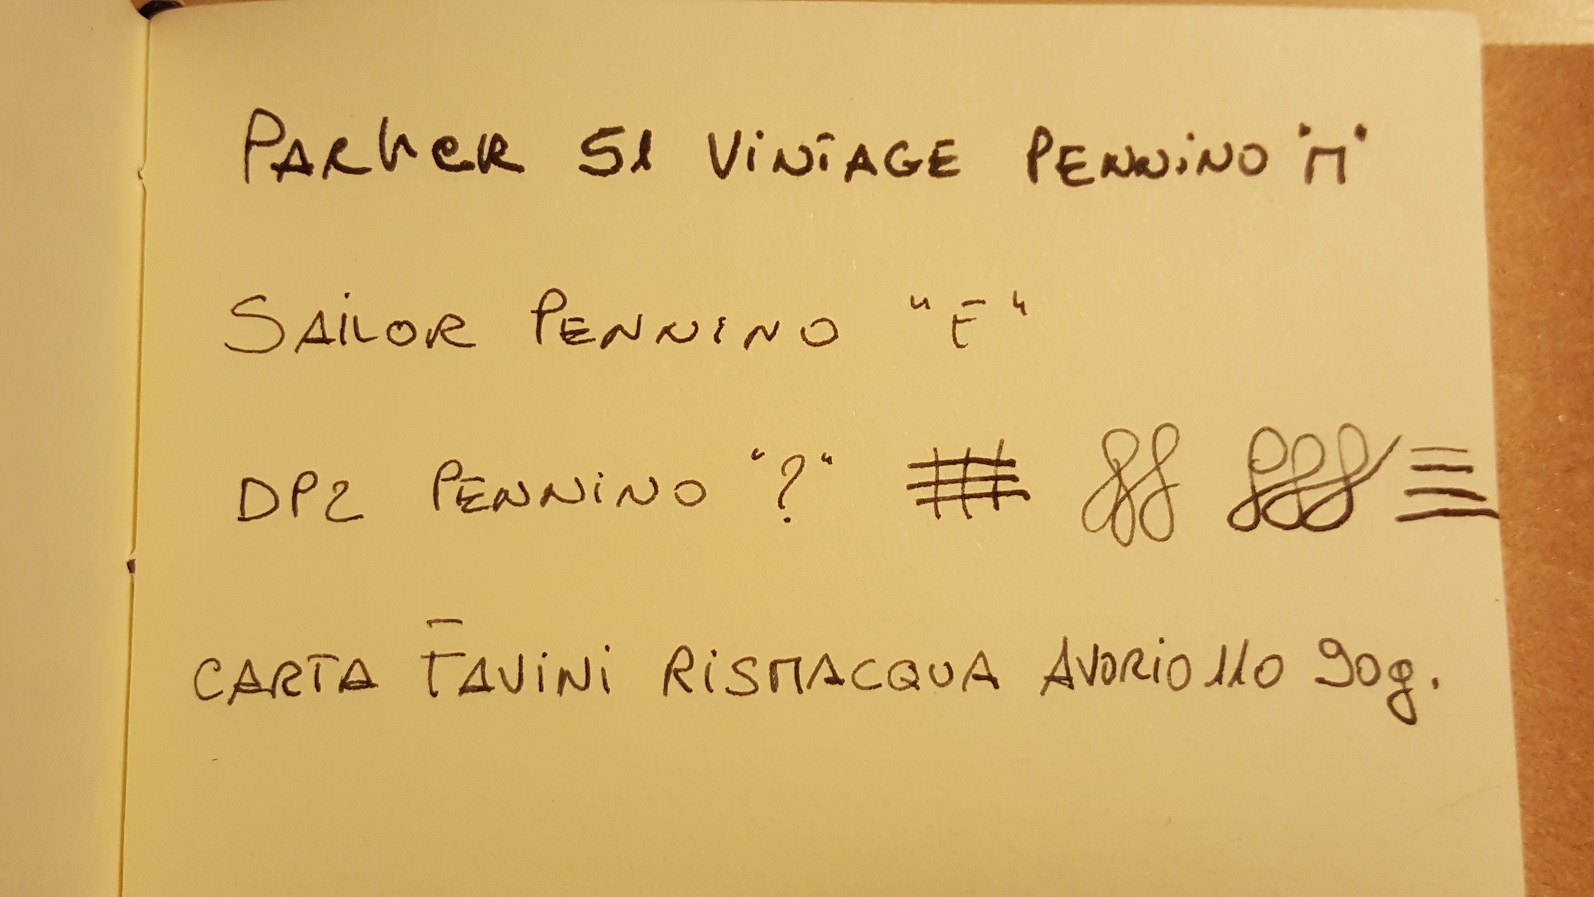 PARkER 51 VINTAGE PENNINO "M"
SAILOR PENNINO "F"
DP2 PENNINO "?"
CARTA FAVINI RISMACQUA AVORIO 110 90g.